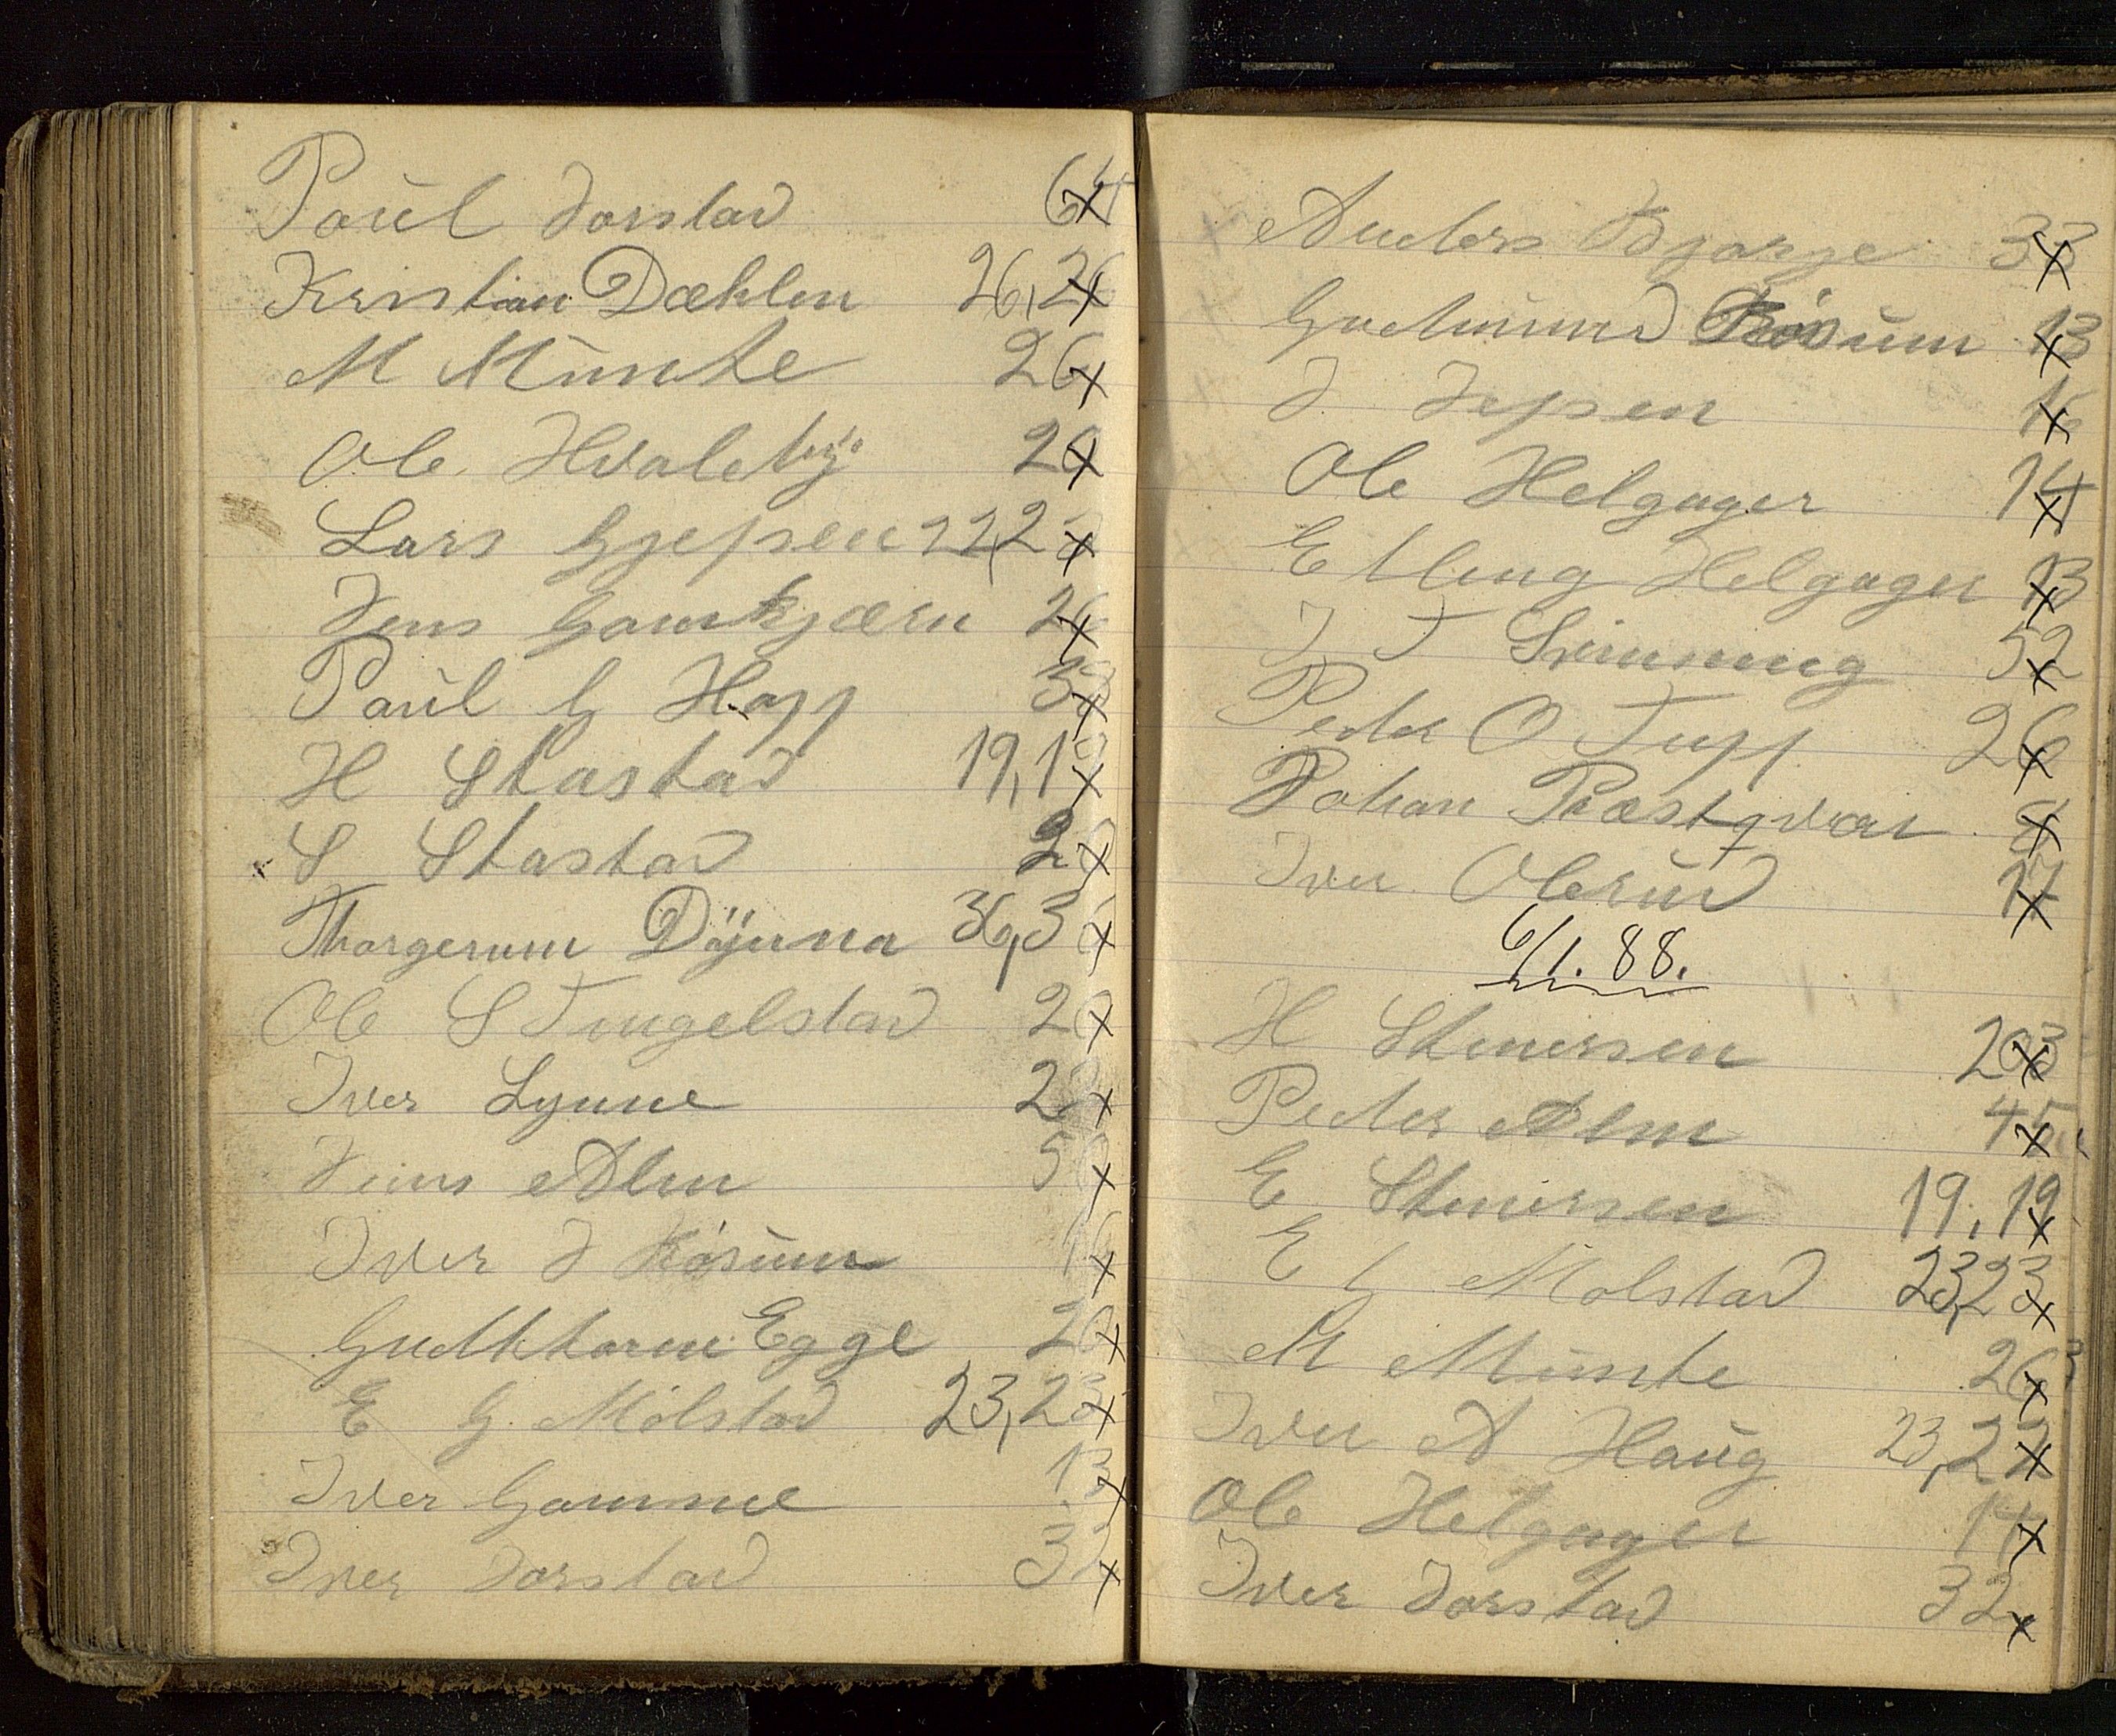 Paul Jorstad 64
Kristian Dæhlen 26,26
M Münte 26
Ole Hvaleby 20
Lars Gjepsen 22,22
Jens Gamkjærn 26
Paul G Hopp 33
H Stastad 19,19
S Stastad 20
Thorgerum Dÿnna 36,36
Ole S Tingelstad 20
Iver Lynne 22
Jens Alm 50
Iver J Kosum 16
Gudthorm Egge 20
E G. Mølstad 23,23
Iver Gamme 13
Iver Jorstad 32
Anders Bjørge 33
Gudmund Rosum 13
J Jepsen 16
Ole Helgager 14
Elling Helgager 13
J T Svinning 52
Peder O Tupp 26
Johan Præstqvær 8
Iver Olerud 17
6/1. 88.
H Stenersen 203
Peder Alm 45
E Stenersen 19,19
E G Molstad 23,23
M Münte 26
Iver A Haug 23,22
Ole Helgager 14
Iver Jorstad 32